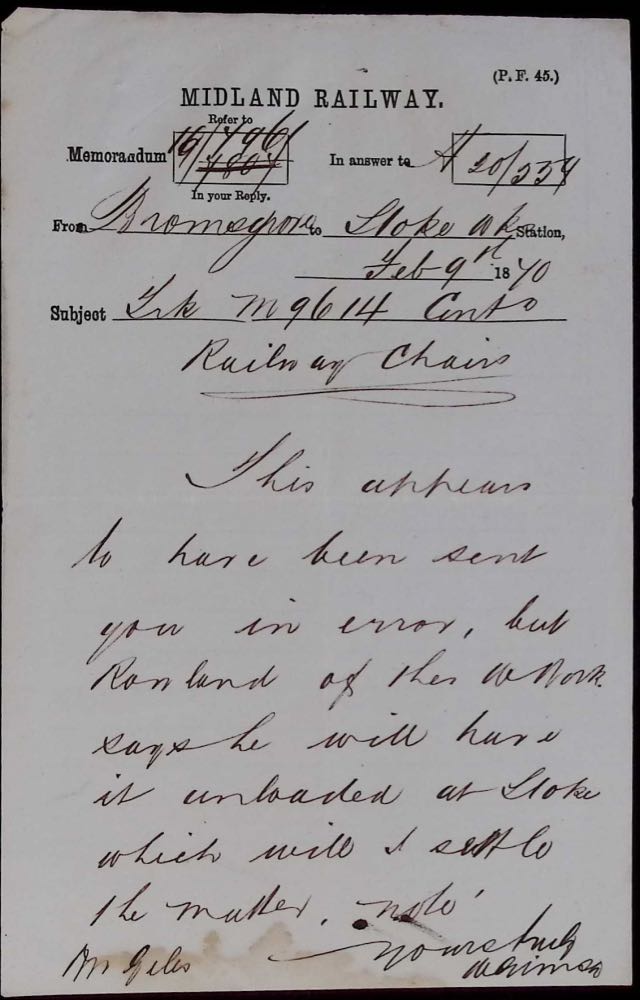 (P. F. 45.)
MIDLAND RAILWAY.
Refer to
Memorandum 19/7961 In answer to A 20/5354
In your Reply.
From Bromsgrove to Stoke Wks Station,
Feb 9th 1870
Subject Trk M 9614 Conts
Railway Chairs
This appears
to have been sent
you in error, but
Rowland of the
says he will have
it unloaded at Stoke
which will I settle
the matter. note
Mr Giles Yours truly